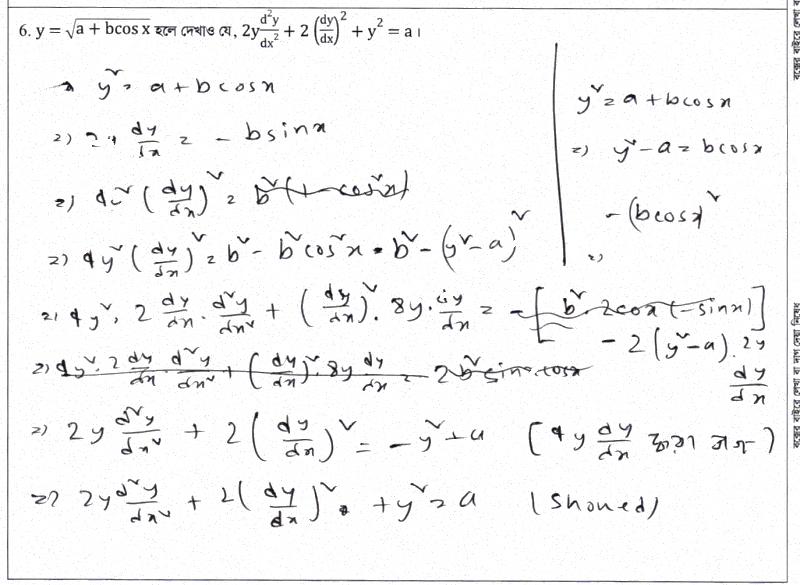 6. y = √(a + bcos x) হলে দেখাও যে, 2y d²y/dx² + 2 (dy/dx)² + y² = a।
y² = a + bcosx
=) 2y dy/dx = - bsinx
=) 4y² (dy/dx)² = b² (1 - cos²x)
=) 4y² (dy/dx)² = b² - b²cos²x = b² - (y² - a)²
=) 4y². 2 dy/dx . d²y/dx² + (dy/dx)². 8y. dy/dx = - [b². 2cosx (-sinx)]
- 2 (y² - a). 2y dy/dx
=) 4y². 2 dy/dx . d²y/dx² + (dy/dx)². 8y dy/dx = 2b² sinx.cosx
=) 2y d²y/dx² + 2 (dy/dx)² = - y² + a [4y dy/dx দ্বারা ভাগ]
=) 2y d²y/dx² + 2 (dy/dx)² + y² = a (Showed)
y² = a + bcosx
=) y² - a = bcosx
- (bcosx)²
=)